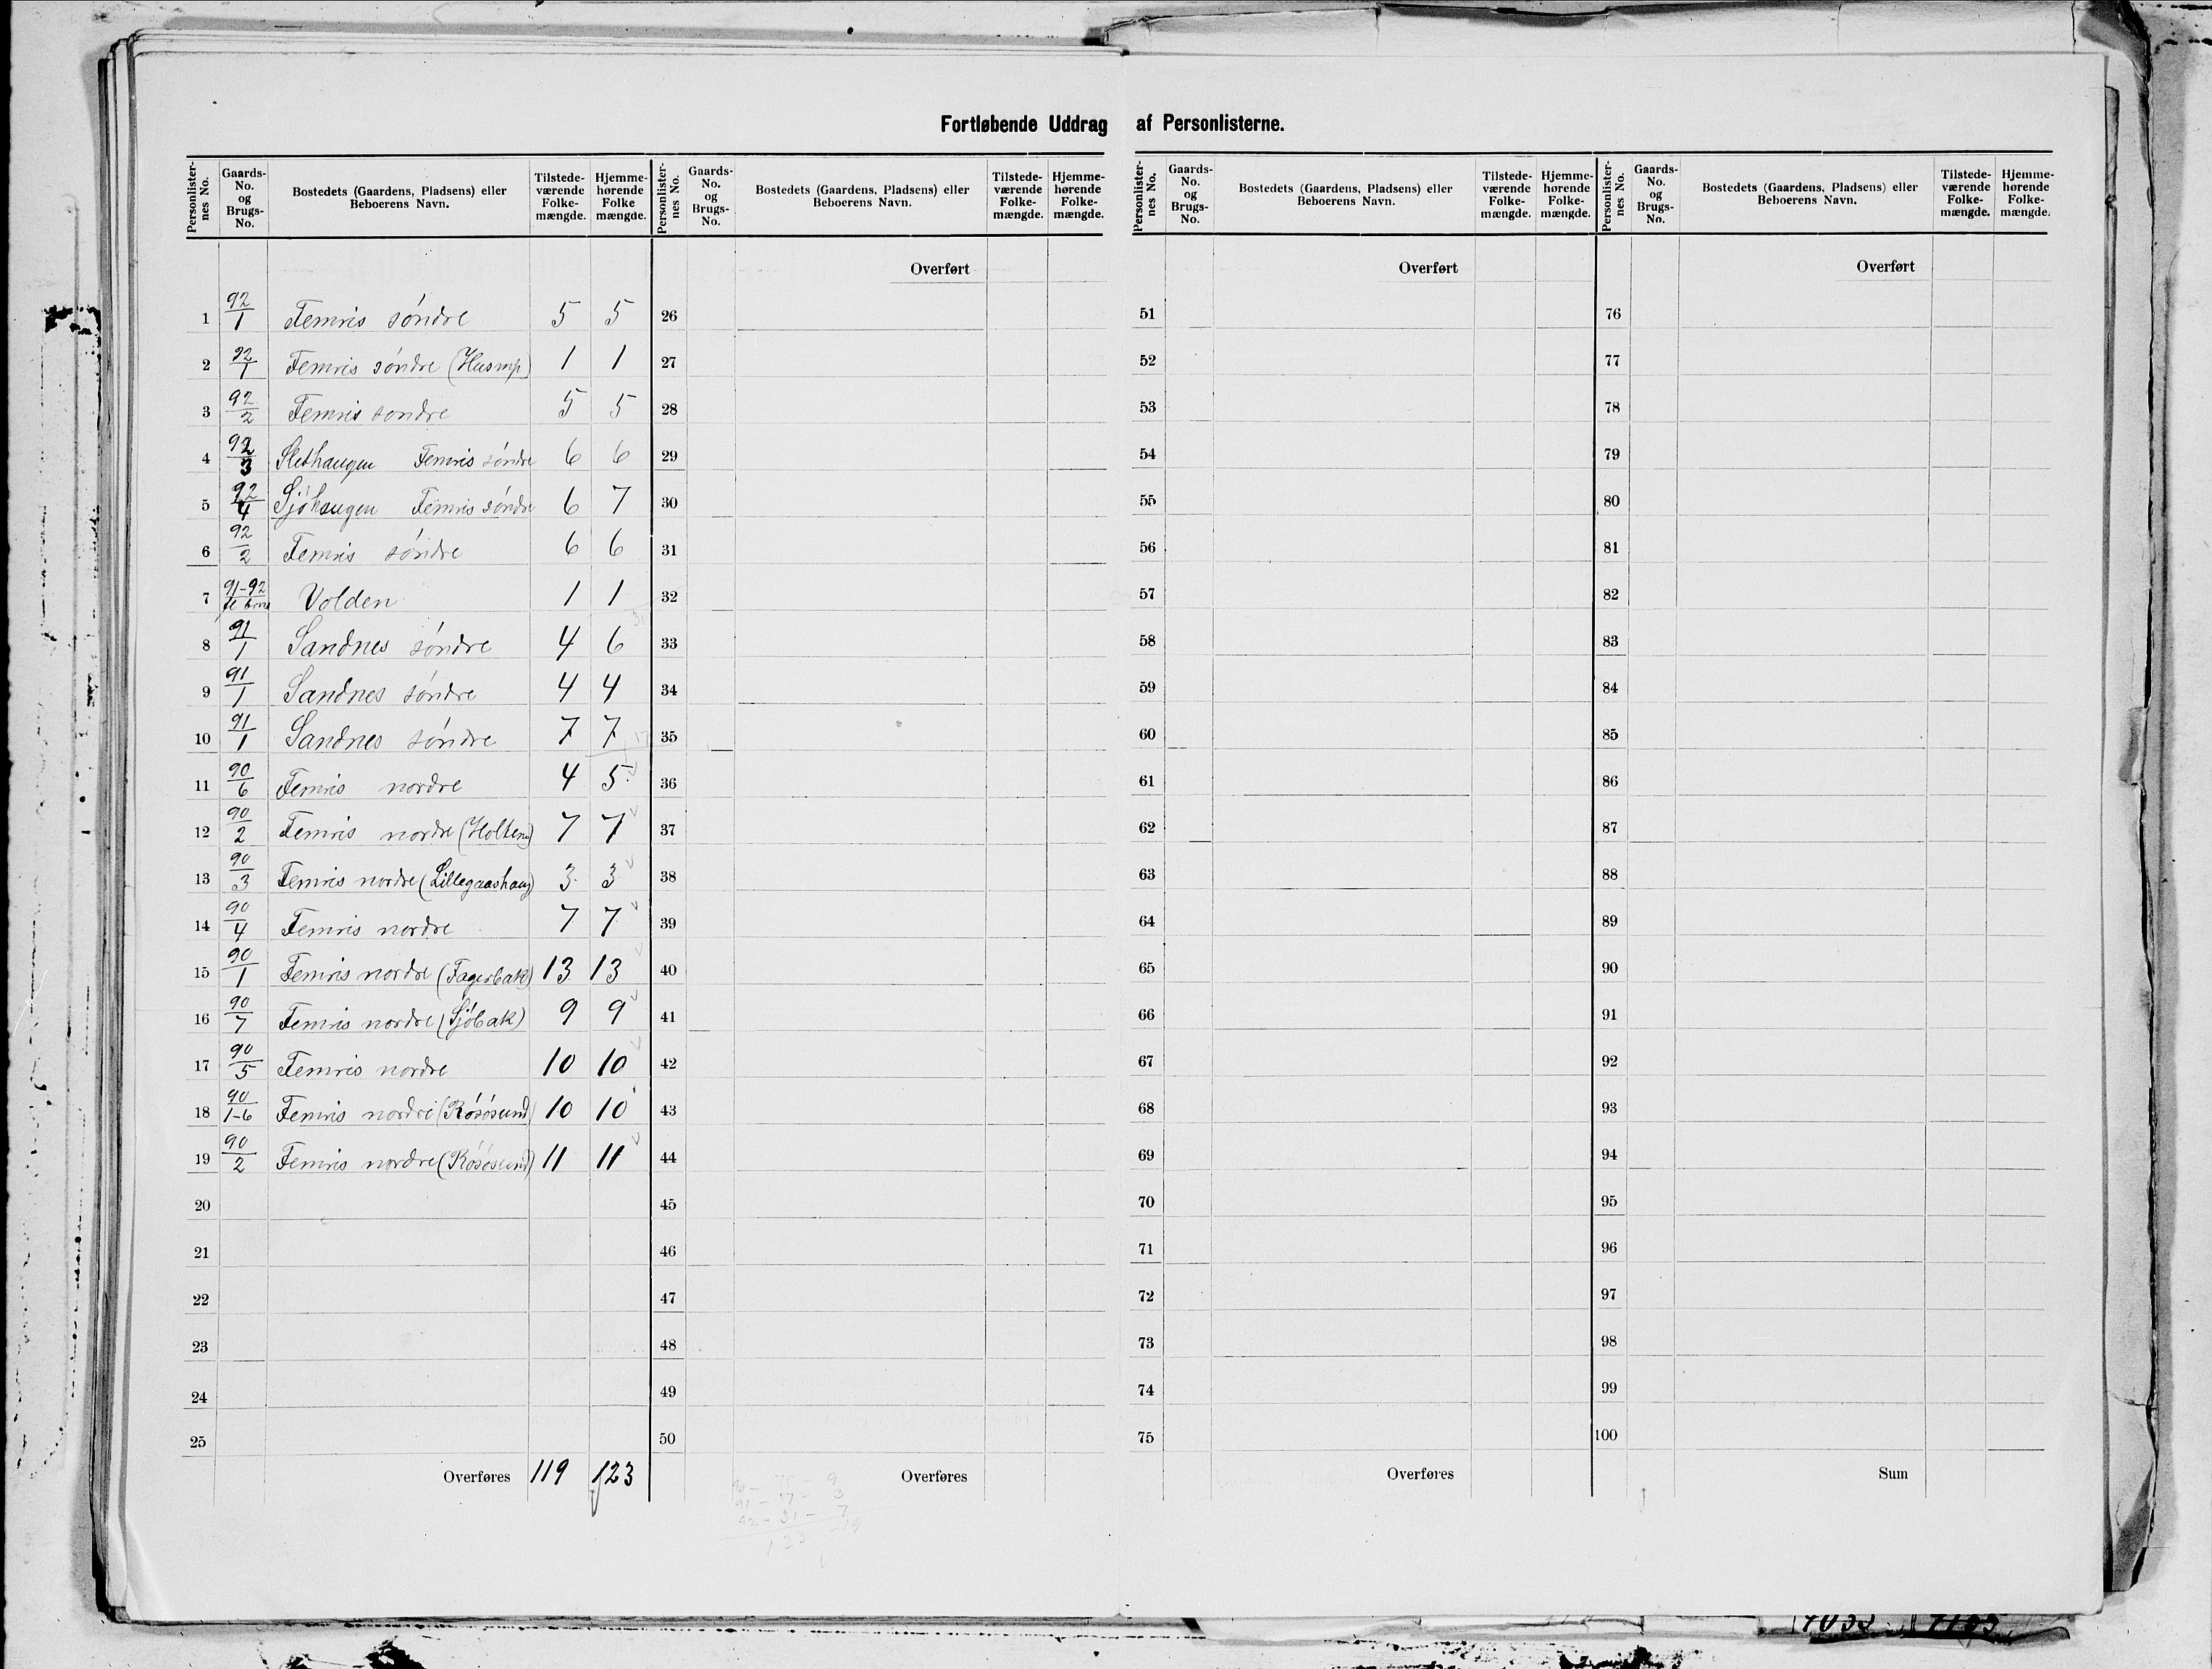 Fortløbende Uddrag af Personlisterne.
Personlisternes No. Gaards-No. og Brugs-No. Bostedets (Gaardens, Pladsens) eller Beboerens Navn. Tilstedeværende Folkemængde. Hjemmehørende Folke mængde.
Personlisternes No. Gaards-No. og Brugs-No. Bostedets (Gaardens, Pladsens) eller Beboerens Navn. Tilstedeværende Folkemængde. Hjemmehørende Folkemængde.
Personlisternes No. Gaards-No. og Brugs-No. Bostedets (Gaardens, Pladsens) eller Beboerens Navn. Tilstedeværende Folkemængde. Hjemmehørende Folkemængde.
Personlisternes No. Gaards-No. og Brugs-No. Bostedets (Gaardens, Pladsens) eller Beboerens Navn. Tilstedeværende Folkemængde. Hjemmehørende Folkemængde.
Overført Overført Overført
1 92/1 Femris søndre 5 5 26 51 76
2 92/1 Femris søndre (Husmp) 1 1 27 52 77
3 92/2 Femris sondre 5 5 28 53 78
4 92/3 Slethaugen Femris søndre 6 6 29 54 79
5 92/4 Sjøhaugen Femris søndre 6 7 30 55 80
6 92/2 Femris søndre 6 6 31 56 81
7 91-92 Volden 1 1 32 57 82
8 91/1 Sandnes søndre 4 6 33 58 83
9 91/1 Sandnes søndre 4 4 34 59 84
10 91/1 Sandnes søndre 7 7 35 60 85
11 90/6 Femris nordre 4 5 36 61 86
12 90/2 Femris nordre (Holten) 7 7 37 62 87
13 90/3 Femris nordre (Lillegaashaug) 3 3 38 63 88
14 90/4 Femris nordre 7 7 39 64 89
15 90/1 Femris nordre (Fagerbak) 13 13 40 65 90
16 90/7 Femris nordre (Sjøbak) 9 9 41 66 91
17 90/5 Femris nordre 10 10 42 67 92
18 90/1-6 Femris nordre (Rosøsund) 10 10 43 68 93
19 90/2 Femris nordre (Rosøsund) 11 11 44 69 94
20 45 70 95
21 46 71 96
22 47 72 97
23 48 73 98
24 49 74 99
25 50 75 100
Overføres 119 123 Overføres Overføres Sum
91 - 17 - 3
92 - 31 - 7
123 - 19